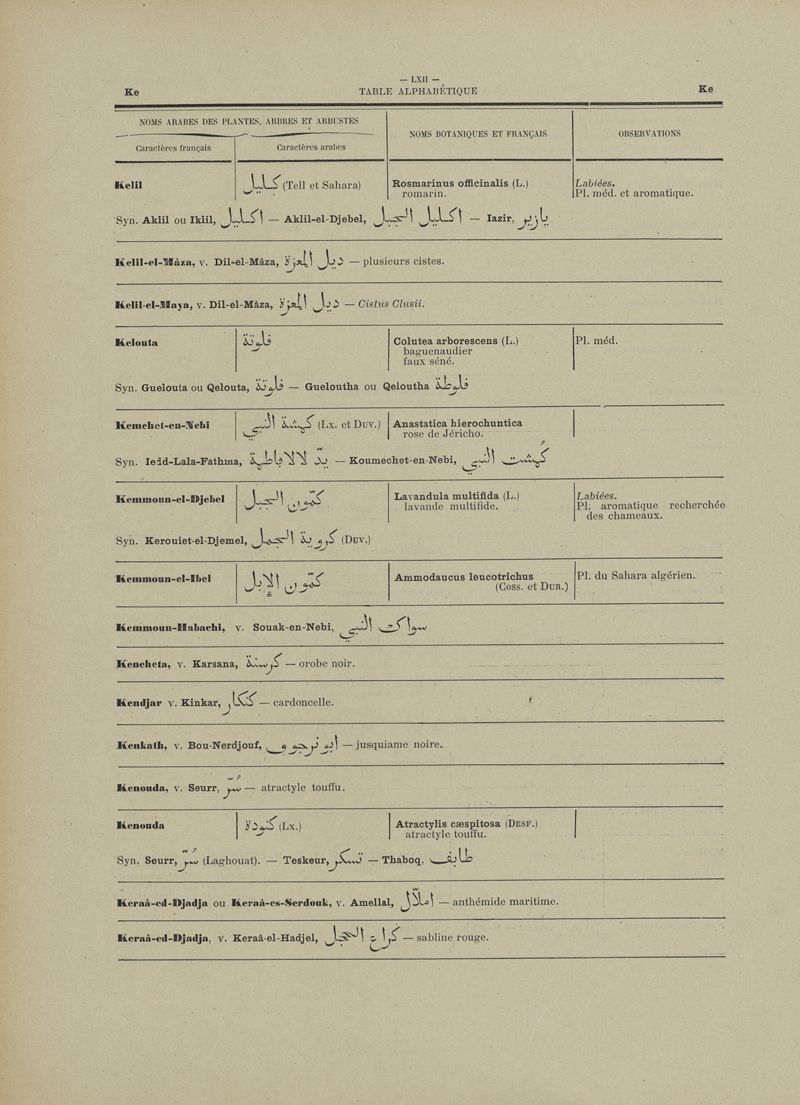 — LXII —
Ke TABLE ALPHABÉTIQUE Ke
NOMS ARABES DES PLANTES, ARBRES ET ARBUSTES
NOMS BOTANIQUES ET FRANÇAIS
OBSERVATIONS
Caractères français
Caractères arabes
Kelil كليل (Tell et Sahara) Rosmarinus officinalis (L.) Labiées.
romarin. Pl. méd. et aromatique.
Syn. Aklil ou Iklil, اكليل — Aklil-el-Djebel, اكليل الجبل — Iazir, يازير
Kelil-el-Mâza, v. Dil-el-Mâza, ذيل المعزة — plusieurs cistes.
Kelil-el-Maya, v. Dil-el-Mâza, ذيل المعزة — Cistus Clusii.
Kelouta قلوتة Colutea arborescens (L.) Pl. méd.
baguenaudier
faux séné.
Syn. Guelouta ou Qelouta, قلوتة — Gueloutha ou Qeloutha قلوطة
Kemchet-en-Nebi كمشة النبي (Lx. et Duv.) Anastatica hierochuntica
rose de Jéricho.
Syn. Ieid-Lala-Fathma, يدّ لالا فاطمة — Koumechet-en-Nebi, كمشت النبي
Kemmoun-el-Djebel كمّون الجبل Lavandula multifida (L.) Labiées.
lavande multifide. Pl. aromatique recherchée
des chameaux.
Syn. Kerouiet-el-Djemel, كروية الجمل (Duv.)
Kemmoun-el-Ibel كمّون الإبل Ammodaucus leucotrichus Pl. du Sahara algérien.
(Coss. et Dur.)
Kemmoun-Habachi, v. Souak-en-Nebi, سواك النبي
Kencheta, v. Karsana, كرسنة — orobe noir.
Kendjar v. Kinkar, كنكار — cardoncelle.
Kenkath, v. Bou-Nerdjouf, ابو نرجوف — jusquiame noire.
Kenouda, v. Seurr, سرّ — atractyle touffu.
Kenouda كنودة (Lx.) Atractylis cæspitosa (Desf.)
atractyle touffu.
Syn. Seurr, سرّ (Laghouat). — Teskeur, تسكر — Thaboq,
Keraâ-ed-Djadja ou Keraâ-es-Serdouk, v. Amellal, املّال — anthémide maritime.
Keraâ-ed-Djadja, v. Keraâ-el-Hadjel, كراع الحجل — sabline rouge.